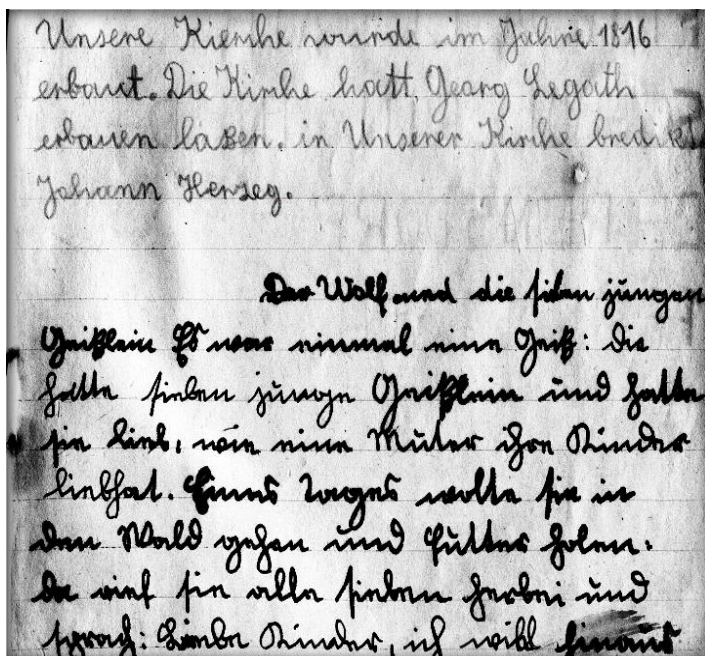 Unsere Kierche wurde im Jahre 1816
erbaut. Die Kirche hatt Georg Legath
erbauen laßen. in Unserer Kirche bredikt
Johann Herzeg.
Der Wolf und die siben jungen
Geißlein Es war einmal eine Geiß: die
hatte sieben junge Geißlein und hatte
sie lieb, wie eine Muter ihre Kinder
liebhat. Eines Tages wolte sie in
den Wald gehen und Futter holen.
da rief sie alle sieben herbei und
sprach: Liebe Kinder, ich will hinaus